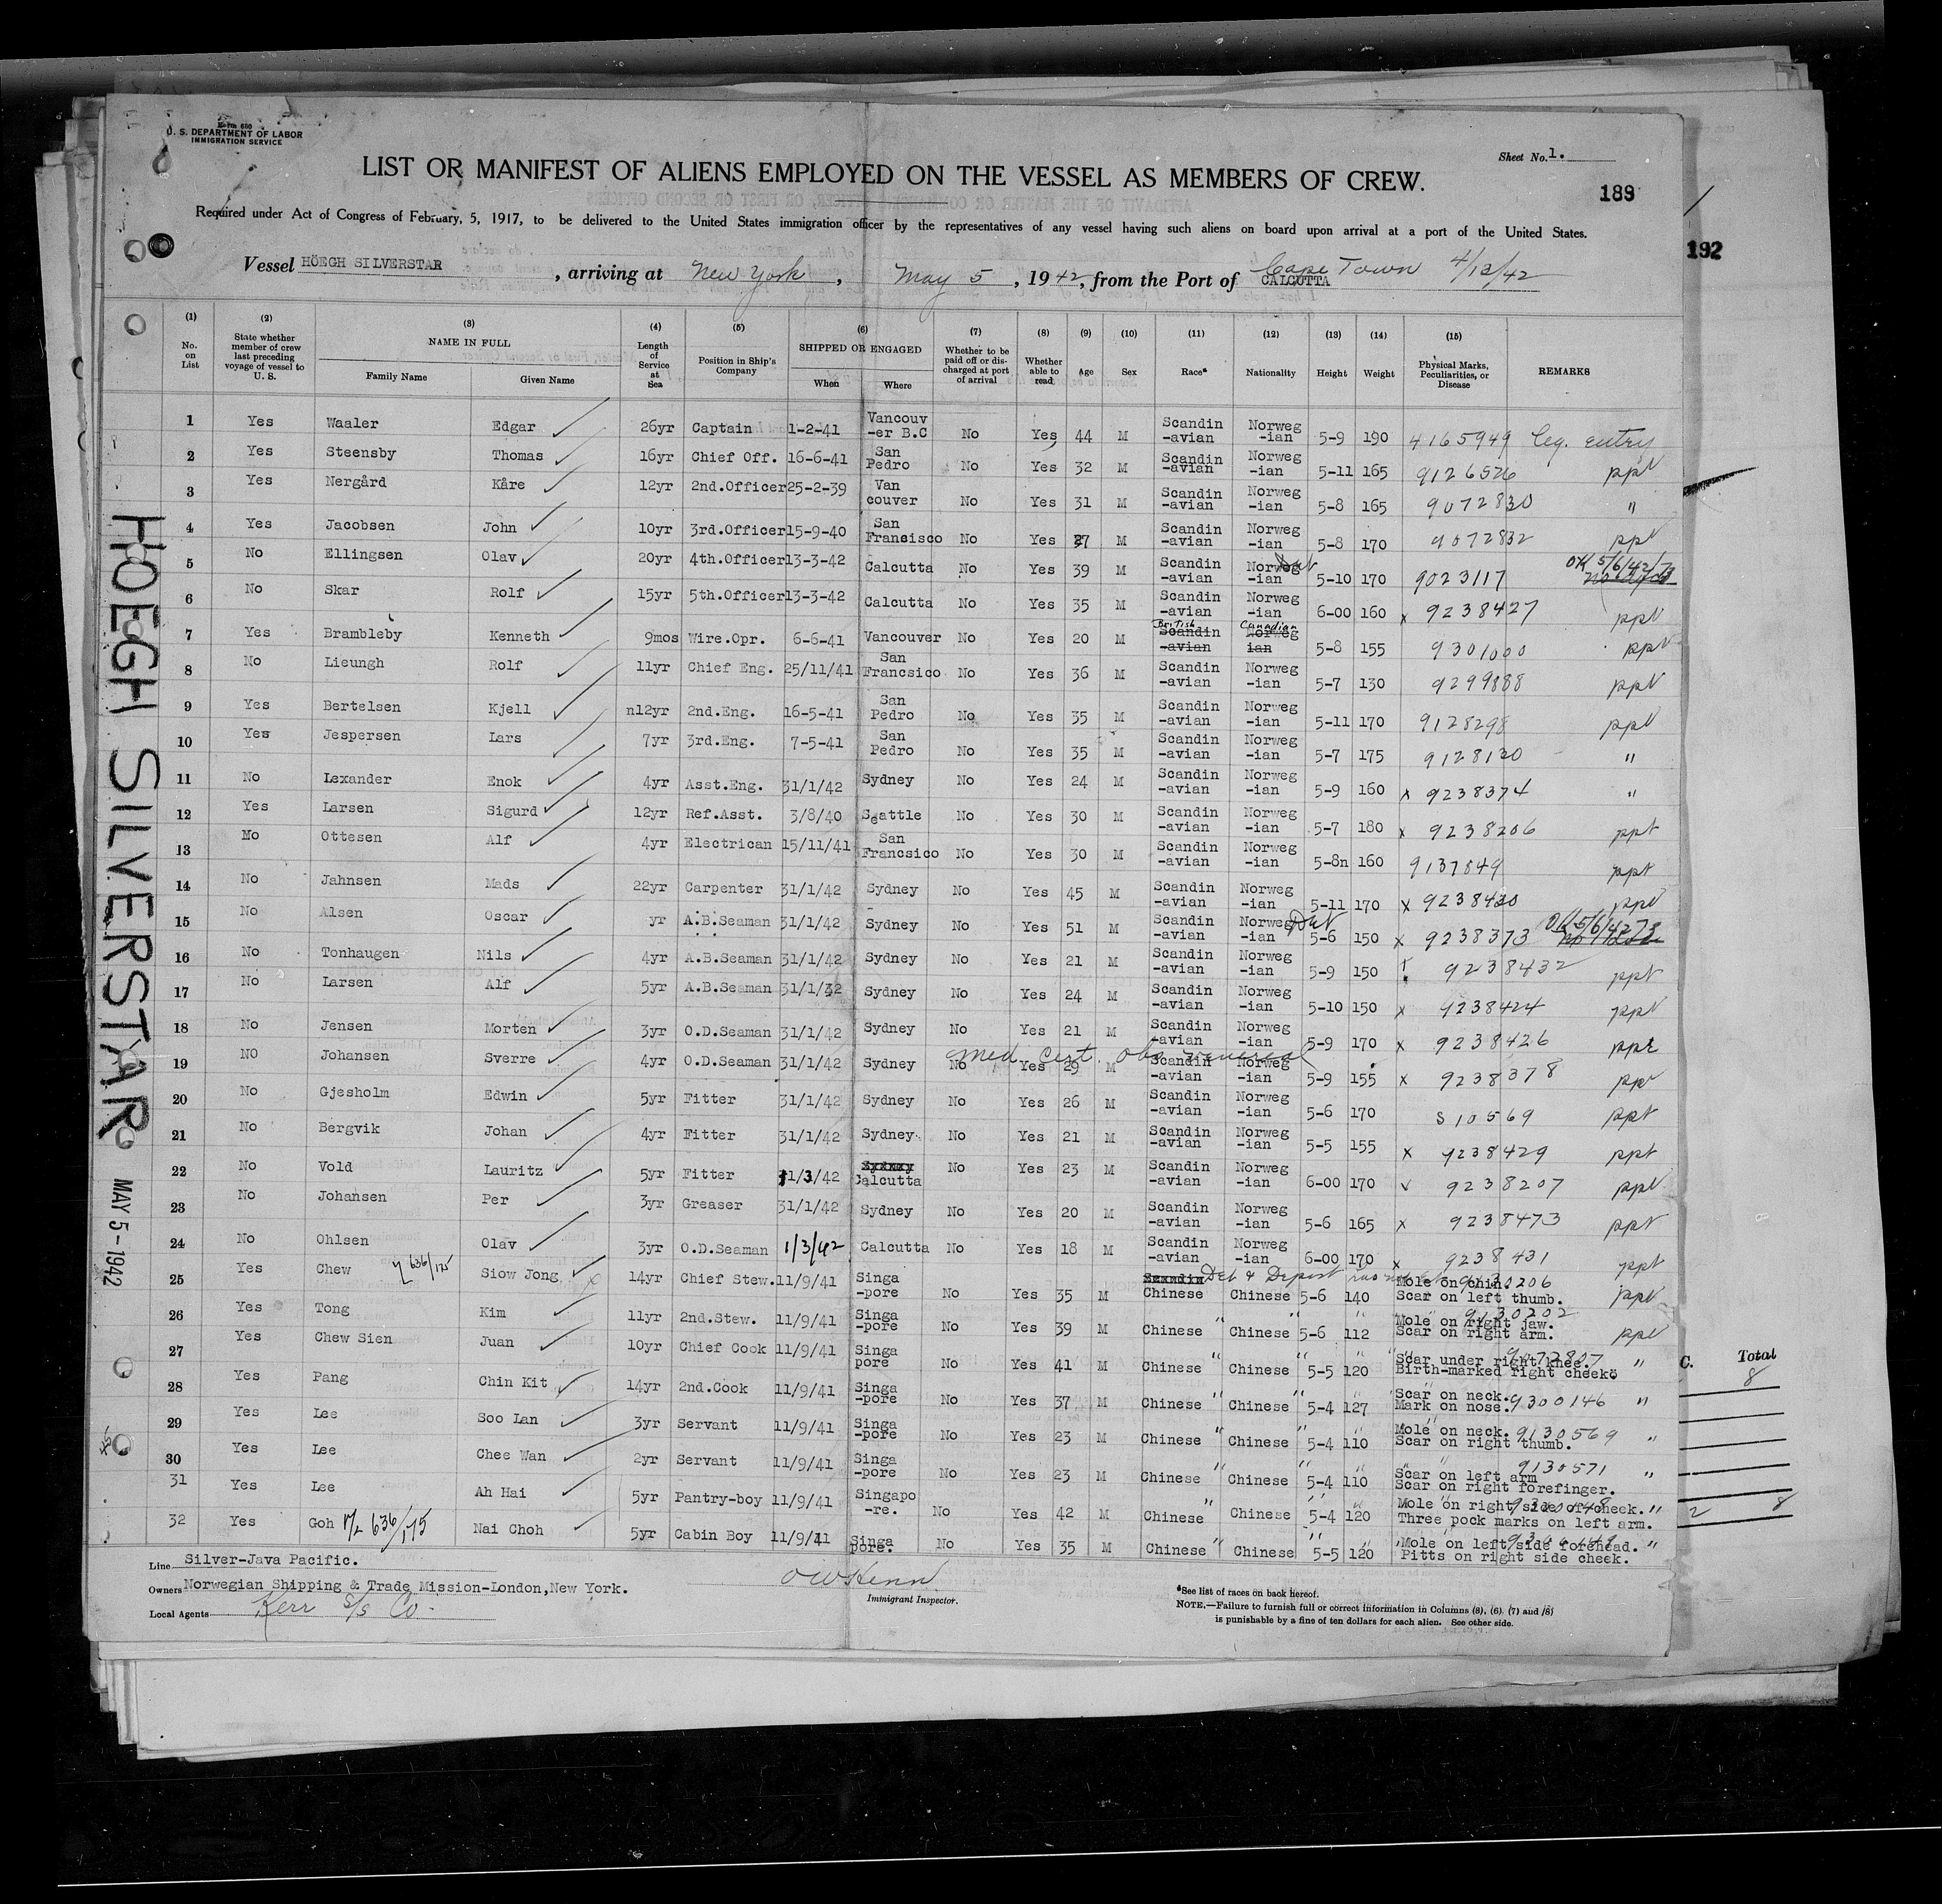 Form 680
U. S. DEPARTMENT OF LABOR
IMMIGRATION SERVICE
Sheet No. 1.
LIST OR MANIFEST OF ALIENS EMPLOYED ON THE VESSEL AS MEMBERS OF CREW.
189
Required under Act of Congress of February, 5, 1917, to be delivered to the United States immigration officer by the representatives of any vessel having such aliens on board upon arrival at a port of the United States.
192
Vessel HÖEGH SILVERSTAR, arriving at New York, May 5, 1942, from the Port of CALCUTTA Cape Town 4/12/42
(1) No. on List (2) State whether member of crew last preceding voyage of vessel to U. S. (3) NAME IN FULL Family Name Given Name (4) Length of Service at Sea (5) Position in Ship's Company (6) SHIPPED OR ENGAGED When Where (7) Whether to be paid off or discharged at port of arrival (8) Whether able to read (9) Age (10) Sex (11) Race* (12) Nationality (13) Height (14) Weight (15) Physical Marks, Peculiarities, or Disease REMARKS
1 Yes Waaler Edgar 26yr Captain 1-2-41 Vancouv-er B.C No Yes 44 M Scandin-avian Norweg-ian 5-9 190 4165949 leg. entry
2 Yes Steensby Thomas 16yr Chief Off. 16-6-41 San Pedro No Yes 32 M Scandin-avian Norweg-ian 5-11 165 9126526 ppt
3 Yes Nergård Kåre 12yr 2nd.Officer 25-2-39 Van couver No Yes 31 M Scandin-avian Norweg-ian 5-8 165 9072830 "
4 Yes Jacobsen John 10yr 3rd.Officer 15-9-40 San Francisco No Yes 27 M Scandin-avian Norweg-ian 5-8 170 9072832 ppt
5 No Ellingsen Olav 20yr 4th.Officer 13-3-42 Calcutta No Yes 39 M Scandin-avian Norweg-ian 5-10 170 9023117 OK 5/6/42
6 No Skar Rolf 15yr 5th.Officer 13-3-42 Calcutta No Yes 35 M Scandin-avian Norweg-ian 6-00 160 x 9238427 ppt
7 Yes Brambleby Kenneth 9mos Wire.Opr. 6-6-41 Vancouver No Yes 20 M Scandin-avian British Norweg ian Canadian 5-8 155 9301000 ppt
8 No Lieungh Rolf 11yr Chief Eng. 25/11/41 San Francsico No Yes 36 M Scandin-avian Norweg-ian 5-7 130 9299888 ppt
9 Yes Bertelsen Kjell n12yr 2nd.Eng. 16-5-41 San Pedro No Yes 35 M Scandin-avian Norweg-ian 5-11 170 9128298 ppt
10 Yes Jespersen Lars 7yr 3rd.Eng. 7-5-41 San Pedro No Yes 35 M Scandin-avian Norweg-ian 5-7 175 9128120 "
11 No Lexander Enok 4yr Asst.Eng. 31/1/42 Sydney No Yes 24 M Scandin-avian Norweg-ian 5-9 160 x 9238374 "
12 Yes Larsen Sigurd 12yr Ref.Asst. 3/8/40 Seattle No Yes 30 M Scandin-avian Norweg-ian 5-7 180 x 9238206 ppt
13 Mo Ottesen Alf 4yr Electrican 15/11/41 San Francsico No Yes 30 M Scandin-avian Norweg-ian 5-8n 160 9137849 ppt
14 No Jahnsen Mads 22yr Carpenter 31/1/42 Sydney No Yes 45 M Scandin-avian Norweg-ian 5-11 170 x 9238430 ppt
15 No Alsen Oscar yr A.B.Seaman 31/1/42 Sydney No Yes 51 M Scandin-avian Norweg-ian 5-6 150 x 9238373 OK 5/6/42
16 No Tonhaugen Nils 4yr A.B.Seaman 31/1/42 Sydney No Yes 21 M Scandin-avian Norweg-ian 5-9 150 9238432 ppt
17 No Larsen Alf 5yr A.B.Seaman 31/1/32 Sydney No Yes 24 M Scandin-avian Norweg-ian 5-10 150 x 9238424 ppt
18 No Jensen Morten 3yr O.D.Seaman 31/1/42 Sydney No Yes 21 M Scandin-avian Norweg-ian 5-9 170 x 9238426 ppt
Med. cert. obs venereal
19 NO Johansen Sverre 4yr O.D.Seaman 31/1/42 Sydney No Yes 29 M Scandin-avian Norweg-ian 5-9 155 x 9238378 ppt
20 No Gjesholm Edwin 5yr Fitter 31/1/42 Sydney No Yes 26 M Scandin-avian Norweg-ian 5-6 170 S10569 ppt
21 No Bergvik Johan 4yr Fitter 31/1/42 Sydney No Yes 21 M Scandin-avian Norweg-ian 5-5 155 x 9238429 ppt
22 No Vold Lauritz 5yr Fitter 11/3/42 Calcutta No Yes 23 M Scandin-avian Norweg-ian 6-00 170 9238207 ppt
23 No Johansen Per 3yr Greaser 31/1/42 Sydney No Yes 20 M Scandin-avian Norweg-ian 5-6 165 x 9238473 ppt
24 No Ohlsen Olav 3yr O.D.Seaman 1/3/42 Calcutta No Yes 18 M Scandin-avian Norweg-ian 6-00 170 x 9238431 ppt
25 Yes Chew 636/175 Siow Jong 14yr Chief Stew. 11/9/41 Singa-pore No Yes 35 M Scandin Chinese Det & Deport Chinese 5-6 140 Mole on chin. 9130206 Scar on left thumb. ppt
26 Yes Tong Kim 11yr 2nd.Stew. 11/9/41 Singa-pore No Yes 39 M Chinese " Chinese " 5-6 112 Mole on right jaw. 9130202 Scar on right arm. ppt
27 Yes Chew Sien Juan 10yr Chief Cook 11/9/41 Singa pore No Yes 41 M Chinese " Chinese " 5-5 120 Scar under right khee. 9072807 Birth-marked right cheek "
28 Yes Pang Chin Kit 14yr 2nd.Cook 11/9/41 Singa-pore No Yes 37 M Chinese " Chinese " 5-4 127 Scar on neck. Mark on nose. 9300146 "
29 Yes Lee Soo Lan 3yr Servant 11/9/41 Singa-pore No Yes 23 M Chinese " Chinese " 5-4 110 Mole on neck. 9130569 Scar on right thumb. "
30 Yes Lee Chee Wan 2yr Servant 11/9/41 Singa-pore No Yes 23 M Chinese " Chinese " 5-4 110 Scar on left arm 9130571 Scar on right forefinger. "
31 Yes Lee Ah Hai 5yr Pantry-boy 11/9/41 Singapo-re. No Yes 42 M Chinese " Chinese " 5-4 120 Mole on right side of cheek. Three pock marks on left arm. "
32 Yes Goh 636/175 Nai Choh 5yr Cabin Boy 11/9/41 Singa pore. No Yes 35 M Chinese " Chinese " 5-5 120 Mole on left side forehead. Pitts on right side cheek. "
C. Total
8
2 8
Line Silver-Java Pacific.
Owners Norwegian Shipping & Trade Mission-London, New York.
Local Agents Kerr S/S Co.
Immigrant Inspector.
*See list of races on back hereof.
NOTE.—Failure to furnish full or correct information in Columns (8), (6), (7) and (8)
is punishable by a fine of ten dollars for each alien. See other side.
HOEGH SILVERSTAR
MAY 5-1942